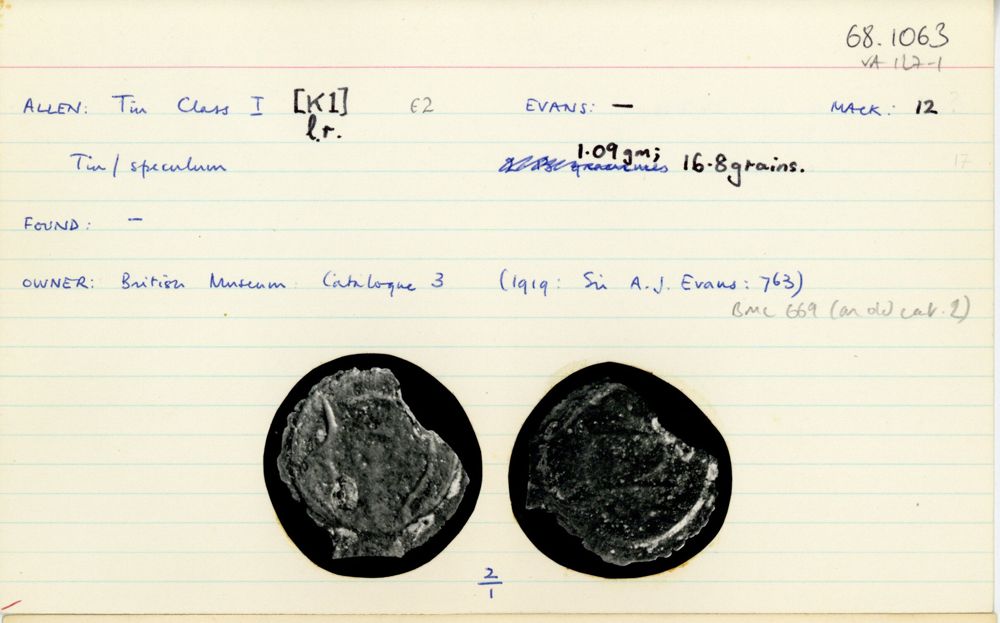 68.1063
VA 127-1
ALLEN: Tin Class I [K1] E2 EVANS: — MACK: 12 ?
l.r.
Tin/speculum 1.09gm; 16.8grains. 17
FOUND: —
OWNER: British Museum: Catalogue 3 (1919: Sir A.J. Evans: 763)
BMC 669 (an old cat. 2)
2
1